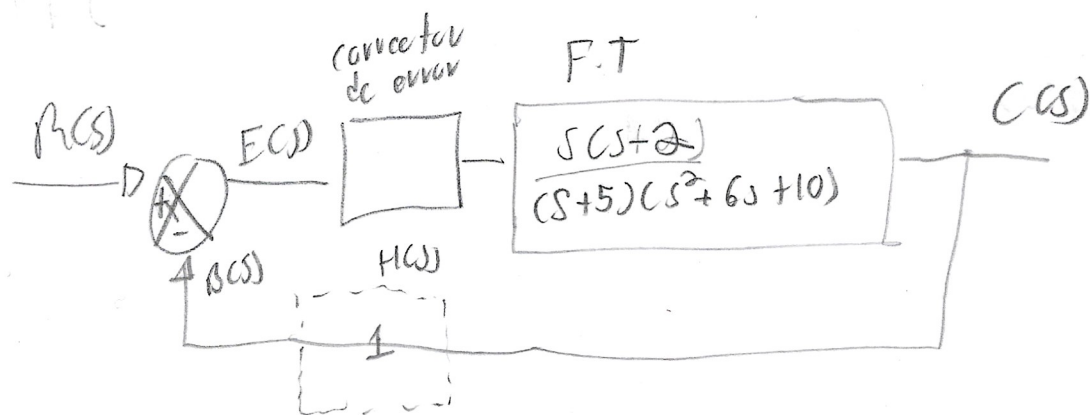 corrector
de error
F.T
R(s)
E(s)
C(s)
s(s+2)
(s+5)(s²+6s+10)
+
-
B(s)
H(s)
1